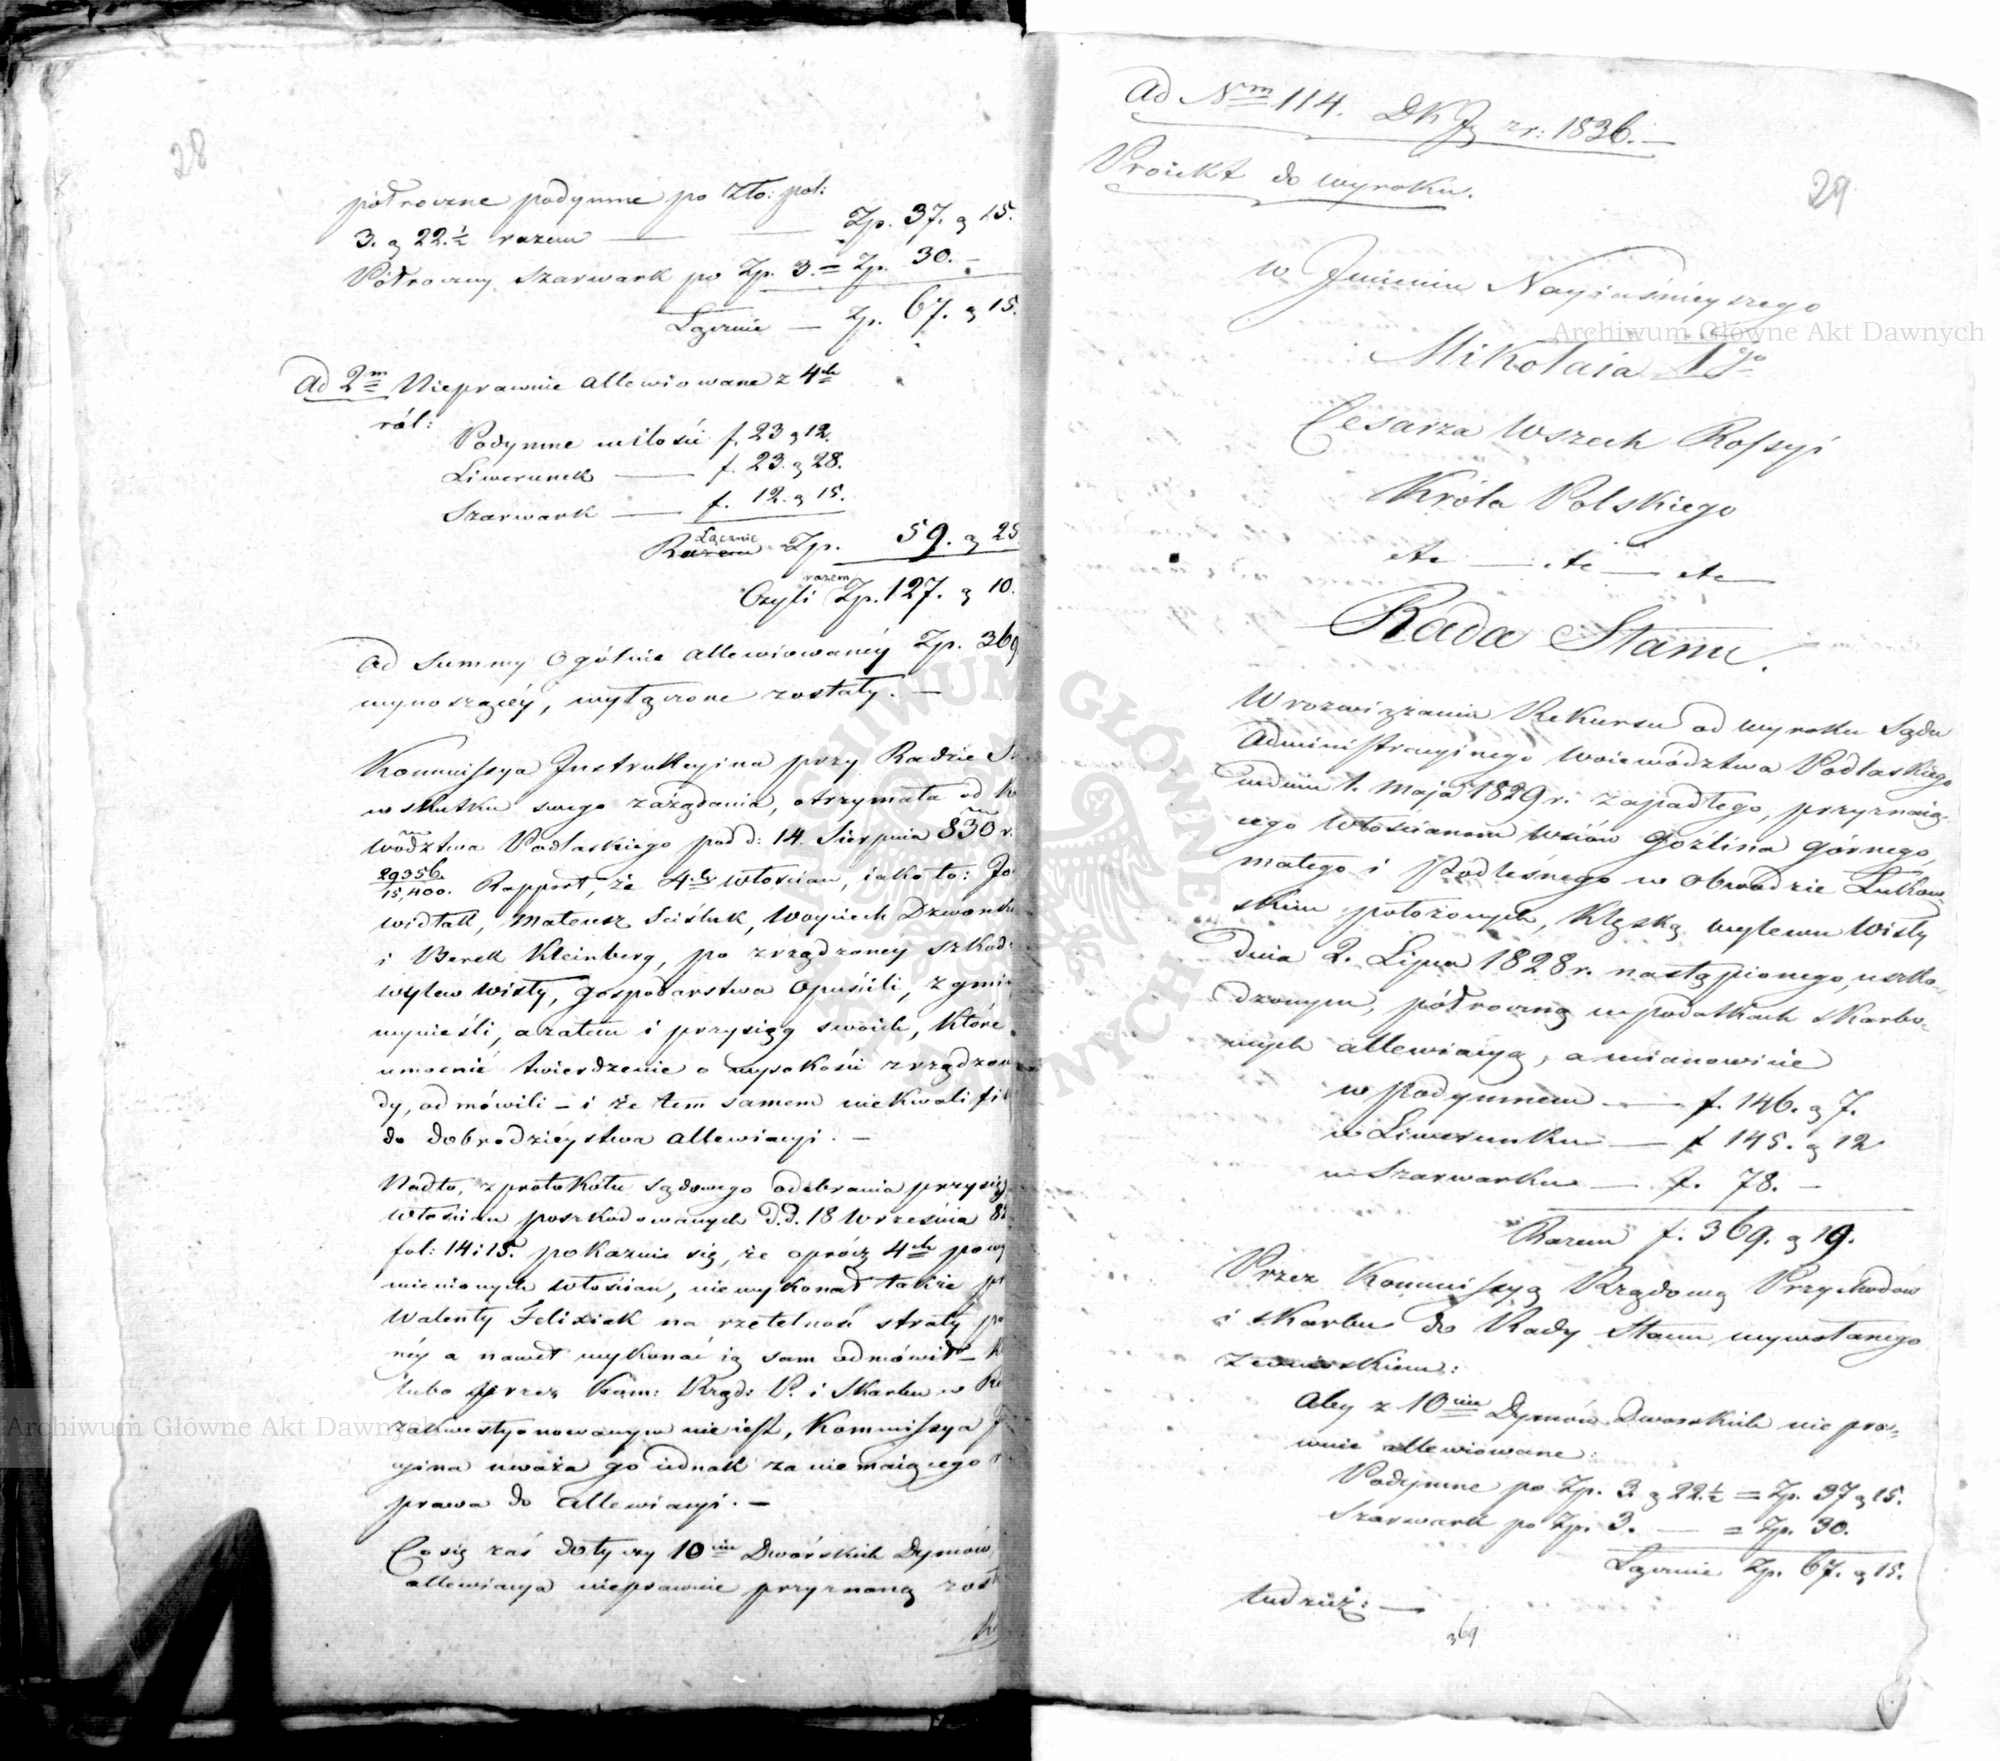 28
półroczne podymne po Zło: pol:
3. g 22.½ razem — — Zp. 37. g 15.
Półroczny Szarwark po Zp. 3. = Zp. 30. —
Łącznie — Zp. 67. g 15.
Ad 2m Nieprawnie allewiowane z 4ch
ról:
Podymne w ilości f. 23 g 12.
Liwerunek — f. 23. g 28.
Szarwark — f. 12. g 15.
Razem Łącznie Zp. 59. g 25
Czyli razem Zp. 127. g 10.
ad Summy Ogólnie allewiowanéy Zp. 369
wynoszącéy, wyłączone zostały. —
Kommissya Instrukcyina przy Radzie S
w skutku swego zażądania, otrzymała od Ko
wództwa Podlaskiego pod d: 14. Sierpnia 830 r.
29356/15,400. Rapport, że 4ch włościan, iako to: Jo
widłak, Mateusz Sciślak, Woyciech Dzwonk
i Berek Kleinberg, po zrządzonéy szkod
wylew Wisły, gospodarstwa opuścili, z gmi
wynieśli, a zatem i przysięg swoich, które
umocnić twierdzenie o wysokości zrządzon
dy, odmówili — i że tem samem niekwalifik
do dobrodzieystwa allewiacyi. —
Nadto, z protokółu sądowego odebrania przysiąg
włościan poszkodowanych d.d. 18 Września 82
fol: 14 i 15. pokazuie się, że oprócz 4ch pow
mienionych włościan, niewykonał także p
Walenty Felixiak na rzetelność straty po
néy a nawet wykonać ią sam odmówił — K
lubo przez Kom: Rząd: P. i Skarbu w Re
zakwestyonowanym nie iest, Kommissya J
cyina uważa go iednak za niemaiącego
prawa do allewiacyi. —
Co się zaś dotyczy 10ciu Dworskich Dymów,
allewiacya nieprawnie przyznaną zost
Ad Nm 114. DKJ z r: 1836. —
Proiekt do wyroku.
29
w Jmieniu Nayiaśnieyszego
Mikołaia Igo
Cesarza Wszech Rossyi
Króla Polskiego
etc — etc — etc —
Rada Stanu.
W rozwiązaniu Rekursu od wyroku Sądu
Administracyinego Woiewództwa Podlaskiego
w dniu 1. Maja 1829 r. zapadłego, przyznaią-
cego Włościanom wsiów Goźlina górnego,
małego i Podleśnego w obwodzie Łukow-
skim położonych, klęską wylewu Wisły
dnia 2. Lipca 1828 r. nastąpionego, uszko-
dzonym, półroczną w podatkach skarbo-
wych allewiacyą, a mianowicie
w Podymnem — f. 146. g 7.
w Liwerunku — f 145. g 12
w Szarwarku — f. 78. —
Razem f. 369. g 19.
Przez Kommissyą Rządową Przychodów
i Skarbu do Rady Stanu wywołanego
z wnioskiem:
Aby z 10ciu Dymów Dworskich nie pra-
wnie allewiowane:
Podymne po Zp. 3. g 22.½ = Zp. 37 g 15.
Szarwark po Zp. 3. — = Zp. 30.
Łącznie Zp. 67. g 15.
tudzież: —
369
Archiwum Główne Akt Dawnych
Archiwum Główne Akt Dawnych
ARCHIWUM GŁÓWNE AKT DAWNYCH